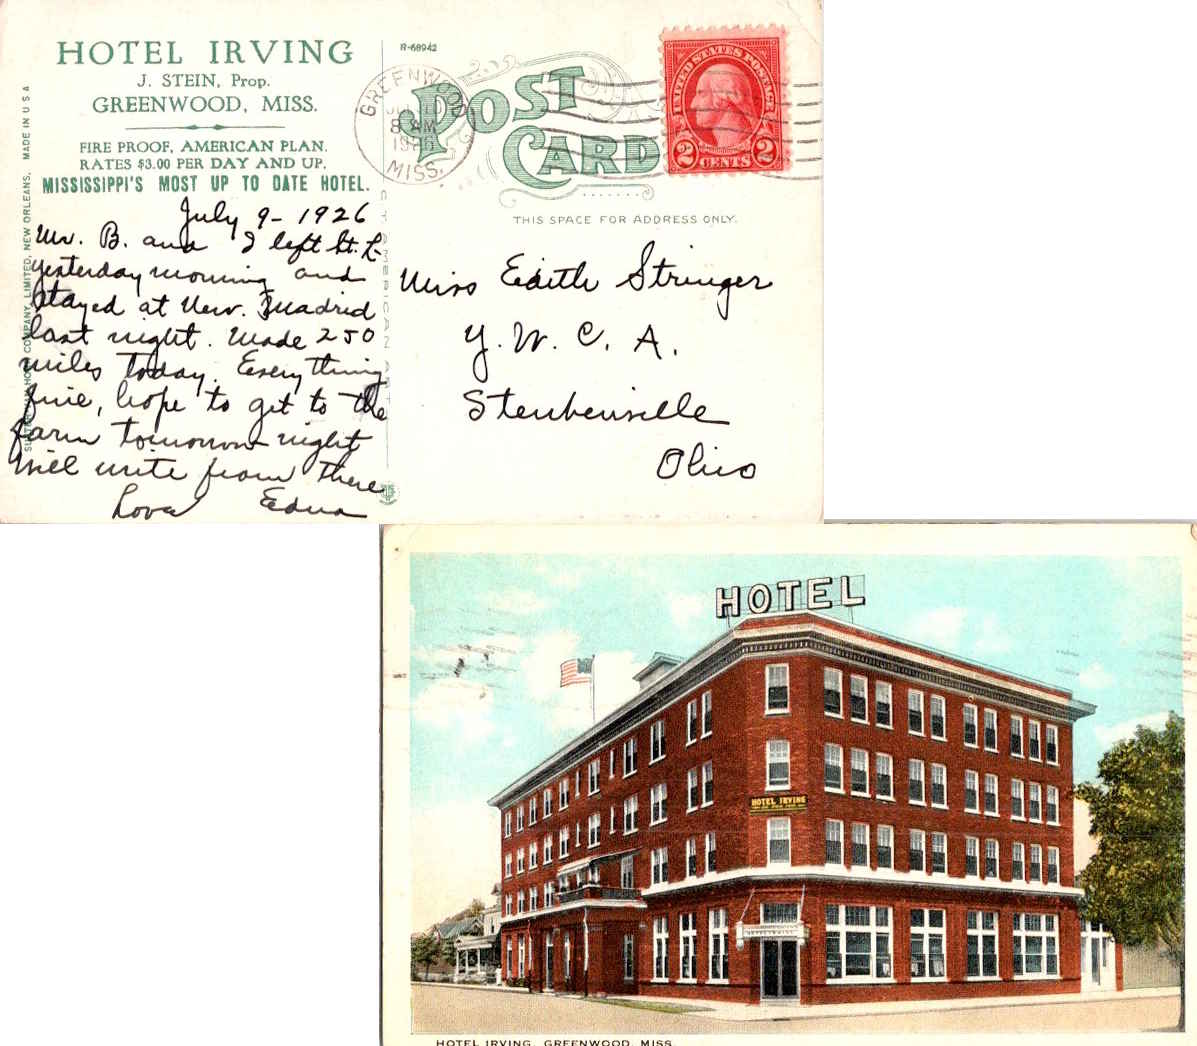 HOTEL IRVING
J. STEIN, Prop.
GREENWOOD, MISS.
FIRE PROOF, AMERICAN PLAN.
RATES $3.00 PER DAY AND UP.
MISSISSIPPI'S MOST UP TO DATE HOTEL.
July 9 - 1926
Mr. B. and I left St. L.
yesterday morning and
stayed at New. Madrid
last night. Made 250
miles today. Everything
fine, hope to get to the
farm tomorrow night
Will write from there
Love Edna
MADE IN U S A
COMPANY, LIMITED, NEW ORLEANS,
R-68942
POST
CARD
GREENWOOD
8 AM
1926
MISS.
UNITED STATES POSTAGE
2 CENTS 2
THIS SPACE FOR ADDRESS ONLY.
Miss Edith Stringer
Y. W. C. A.
Steubenville
Ohio
HOTEL
HOTEL IRVING
HOTEL IRVING, GREENWOOD, MISS.